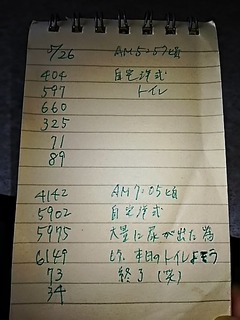 5/26 AM5:57頃
404 自宅洋式
597 トイレ
660
325
71
89
4142 AM7:05頃
5902 自宅洋式
5975 大量に尿が出た為
6149 本日のトイレは
73 終了(笑)
34